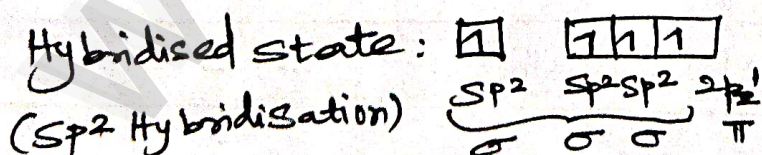 Hybridised state: 1 1 1 1
(Sp² Hybridisation) Sp² Sp² Sp² 2p_z¹
σ σ σ π